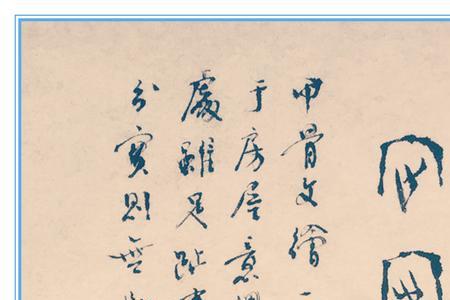 甲骨文繪
于房屋意
處雖足趾
分實則無